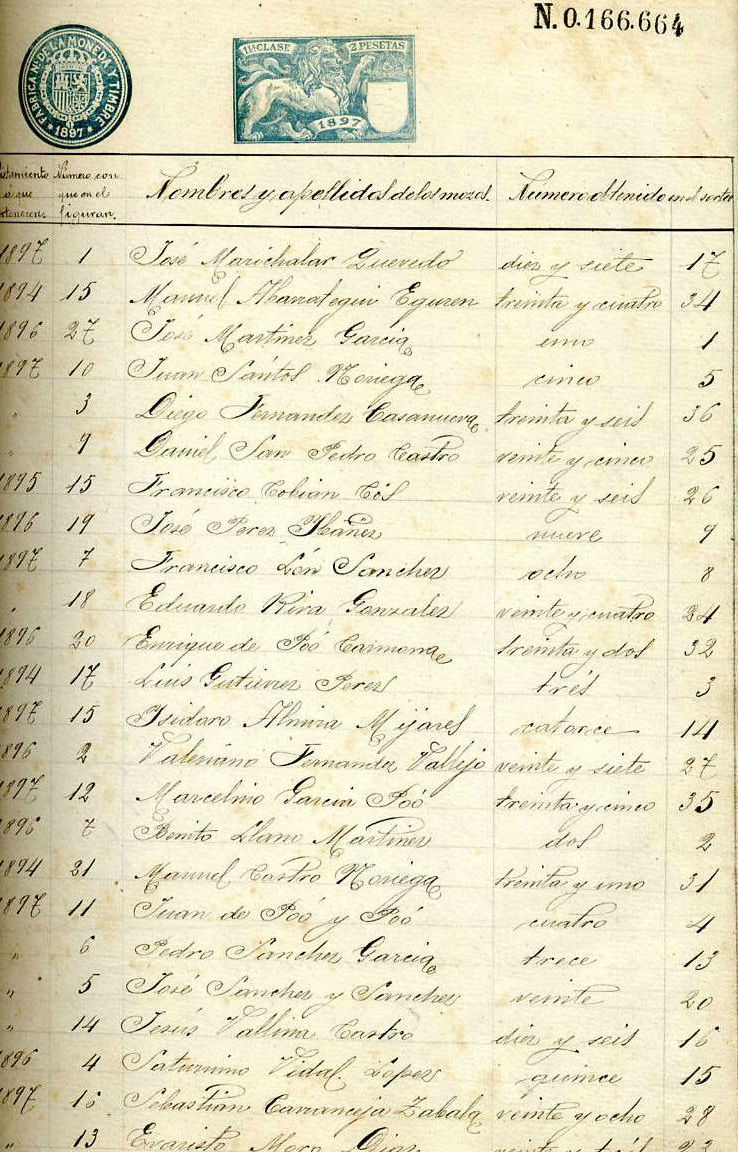 N. 0.166.664
FABRICA N. DE LA MONEDA Y TIMBRE
* 1897 *
11ª CLASE 2 PESETAS
1897
Numero con que en el figuran. Nombres y apellidos de los mozos. Numero obtenido en el sorteo
1897 1 José Marichalar Quevedo diez y siete 17
1894 15 Manuel Eguren treinta y cuatro 34
1896 27 José Martinez Garcia uno 1
1897 10 Juan Santos Noriega cinco 5
" 3 Diego Fernandez Casanueva treinta y seis 36
" 9 Daniel San Pedro Castro veinte y cinco 25
1895 15 Francisco Cobian Cos veinte y seis 26
1896 19 José Perez Ibañez nueve 9
1897 7 Francisco Lón Sanchez ocho 8
" 18 Eduardo Riva Gonzalez veinte y cuatro 24
1896 20 Enrique de Poó treinta y dos 32
1894 17 Luis Gutierrez Perez trés 3
1897 15 Isidoro Mijares catorce 14
1896 2 Valeriano Fernandez Vallejo veinte y siete 27
1897 12 Marcelino Garcia Poó treinta y cinco 35
1896 7 Benito Llano Martinez dos 2
1894 21 Manuel Castro Noriega treinta y uno 31
1897 11 Juan de Poó y Poó cuatro 4
" 6 Pedro Sanchez Garcia trece 13
" 5 José Sanchez y Sanchez veinte 20
" 14 Jesús Vallina Castro diez y seis 16
1896 4 Saturnino Vidal Lopez quince 15
1897 16 Sebastian Carranceja Zabala veinte y ocho 28
" 13 Evaristo Moro Diaz veinte y trés 23